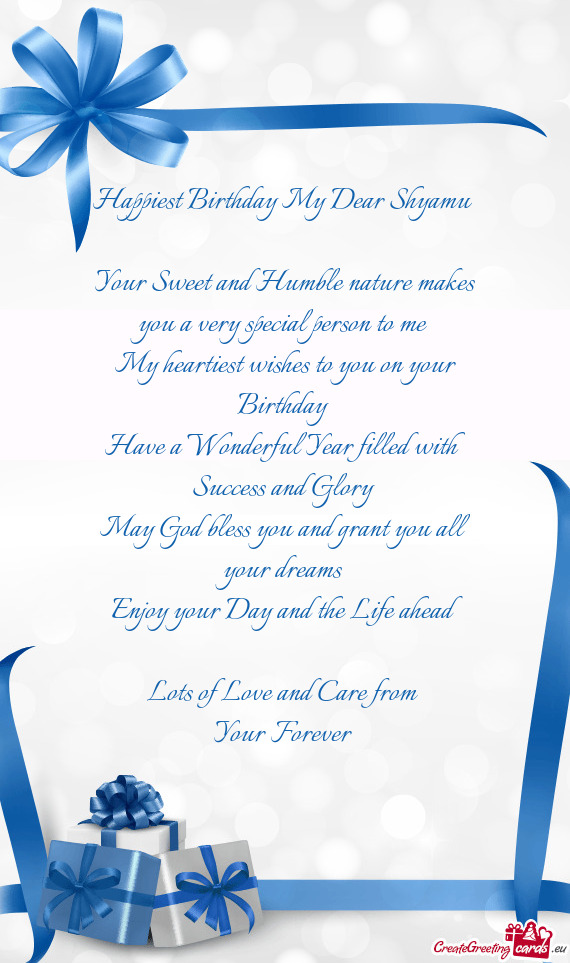 Happiest Birthday My Dear Shyamu
Your Sweet and Humble nature makes
you a very special person to me
My heartiest wishes to you on your
Birthday
Have a Wonderful Year filled with
Success and Glory
May God bless you and grant you all
your dreams
Enjoy your Day and the Life ahead
Lots of Love and Care from
Your Forever
CreateGreeting cards .eu